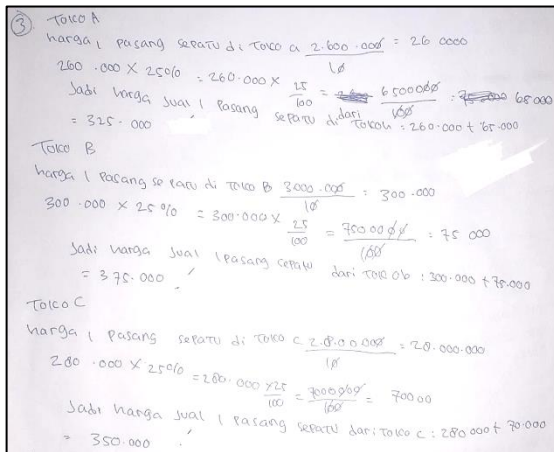 ③ Toko A
harga 1 pasang sepatu di Toko a 2.600.000/10 = 26 0000
260.000 x 25% = 260.000 x 25/100 = 6500000/100 : 65000
Jadi harga jual 1 pasang sepatu di dari Tokoa : 260.000 + 65.000
= 325.000
Toko B
harga 1 pasang sepatu di Toko B 3000.000/10 : 300.000
300.000 x 25% = 300.000 x 25/100 = 7500000/100 : 75 000
Jadi harga jual 1 pasang sepatu dari Toko b : 300.000 + 75.000
= 375.000
Toko C
harga 1 pasang sepatu di Toko c 2.8.00.000/10 = 28.000.000
280.000 x 25% = 280.000 x 25/100 = 7000000/100 = 70000
Jadi harga jual 1 pasang sepatu dari Toko c : 280 000 + 70.000
= 350.000